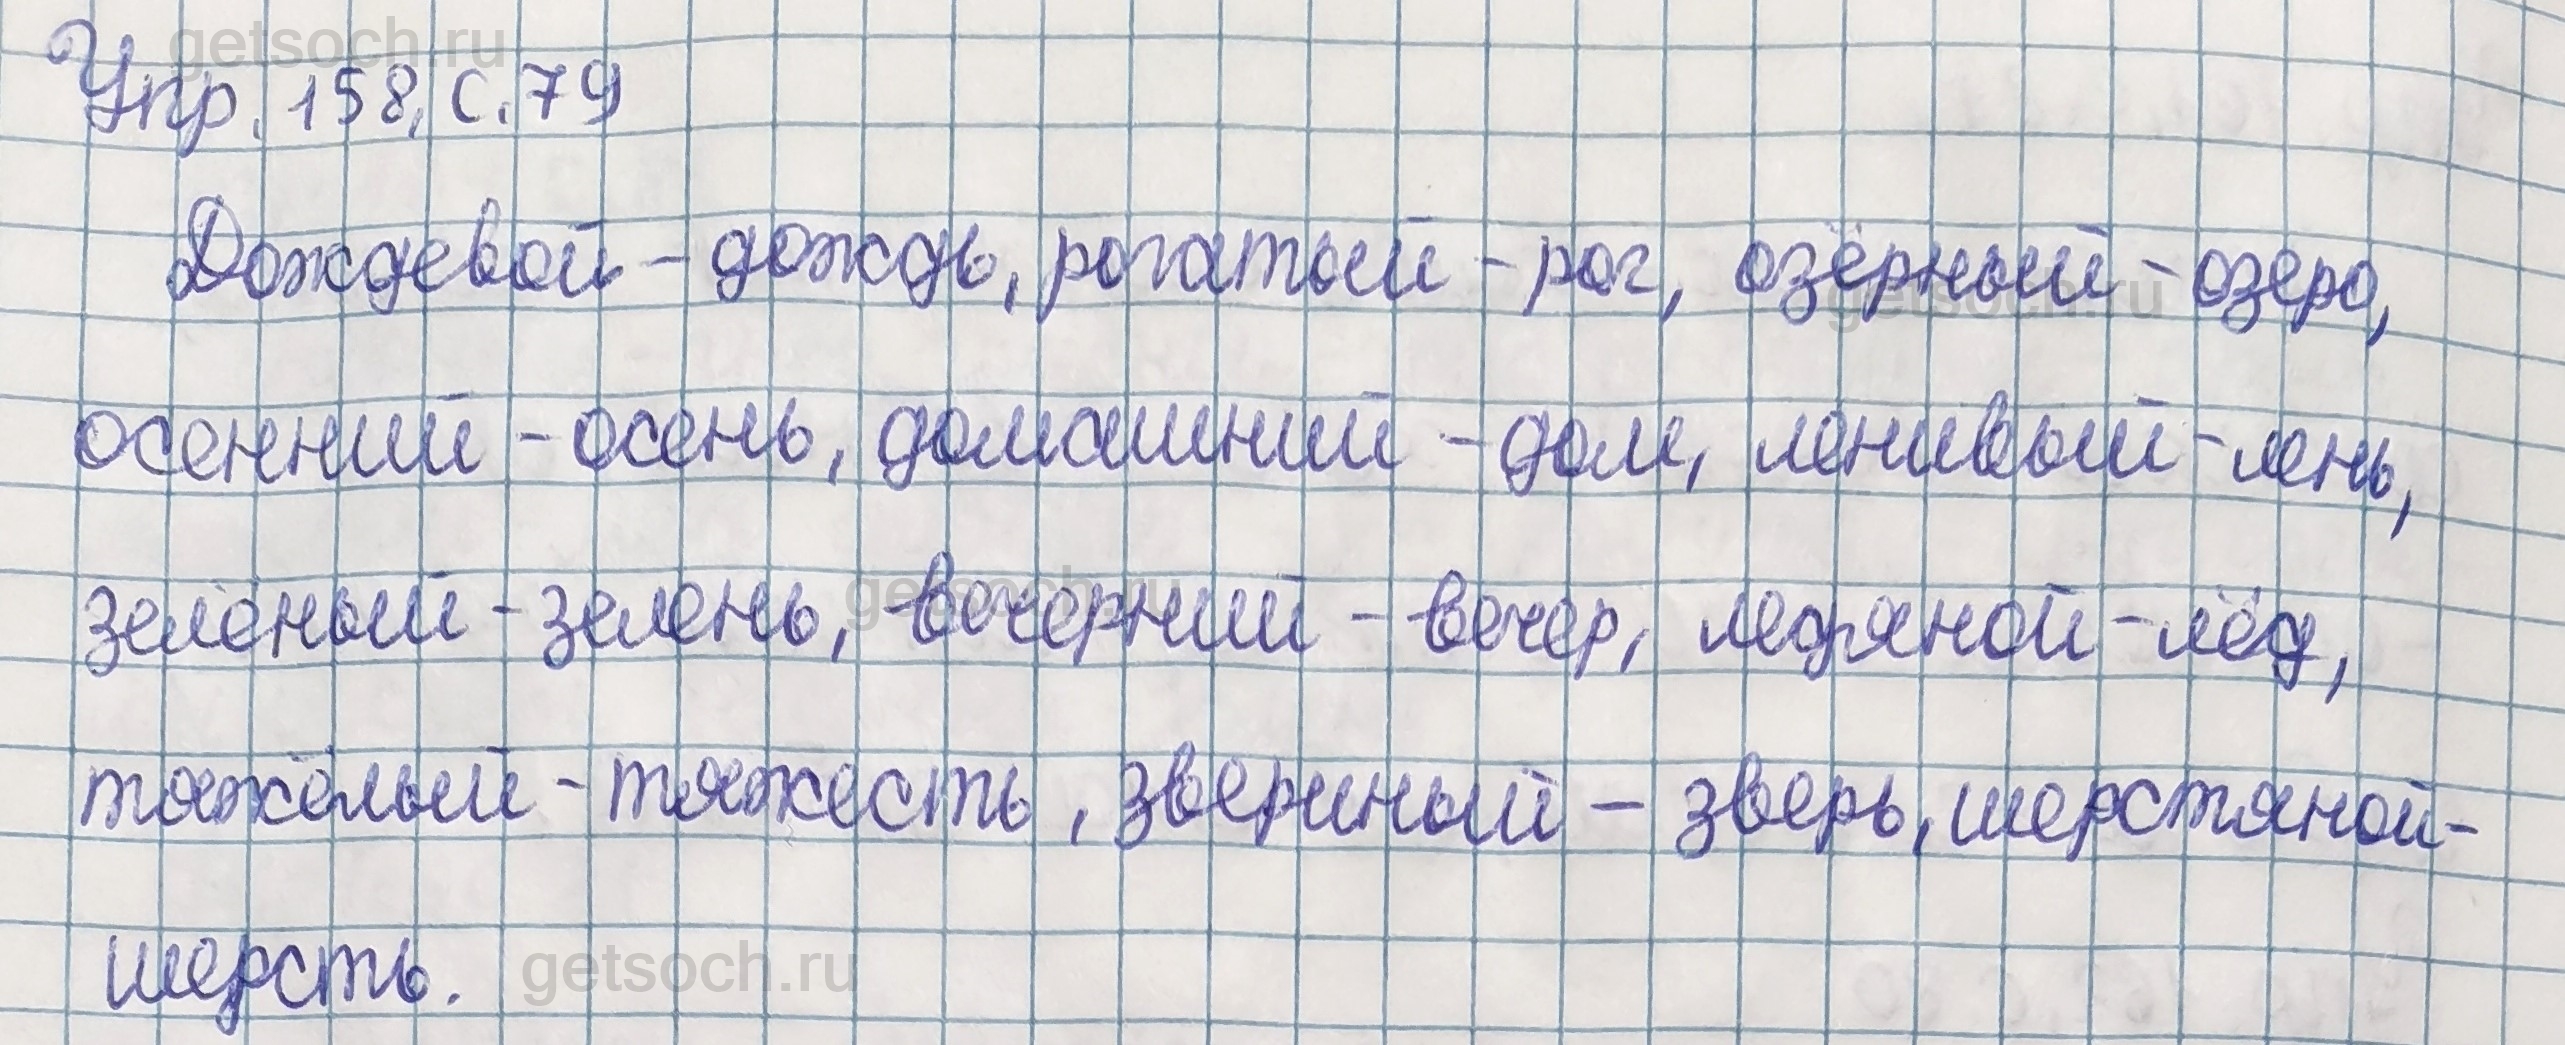 getsoch.ru
Упр. 158, с. 79
Дождевой - дождь, рогатый - рог, озёрный - озеро,
getsoch.ru
осенний - осень, домашний - дом, ленивый - лень,
зелёный - зелень, вечерний - вечер, ледяной - лёд,
getsoch.ru
тяжёлый - тяжесть, звериный - зверь, шерстяной -
шерсть.
getsoch.ru